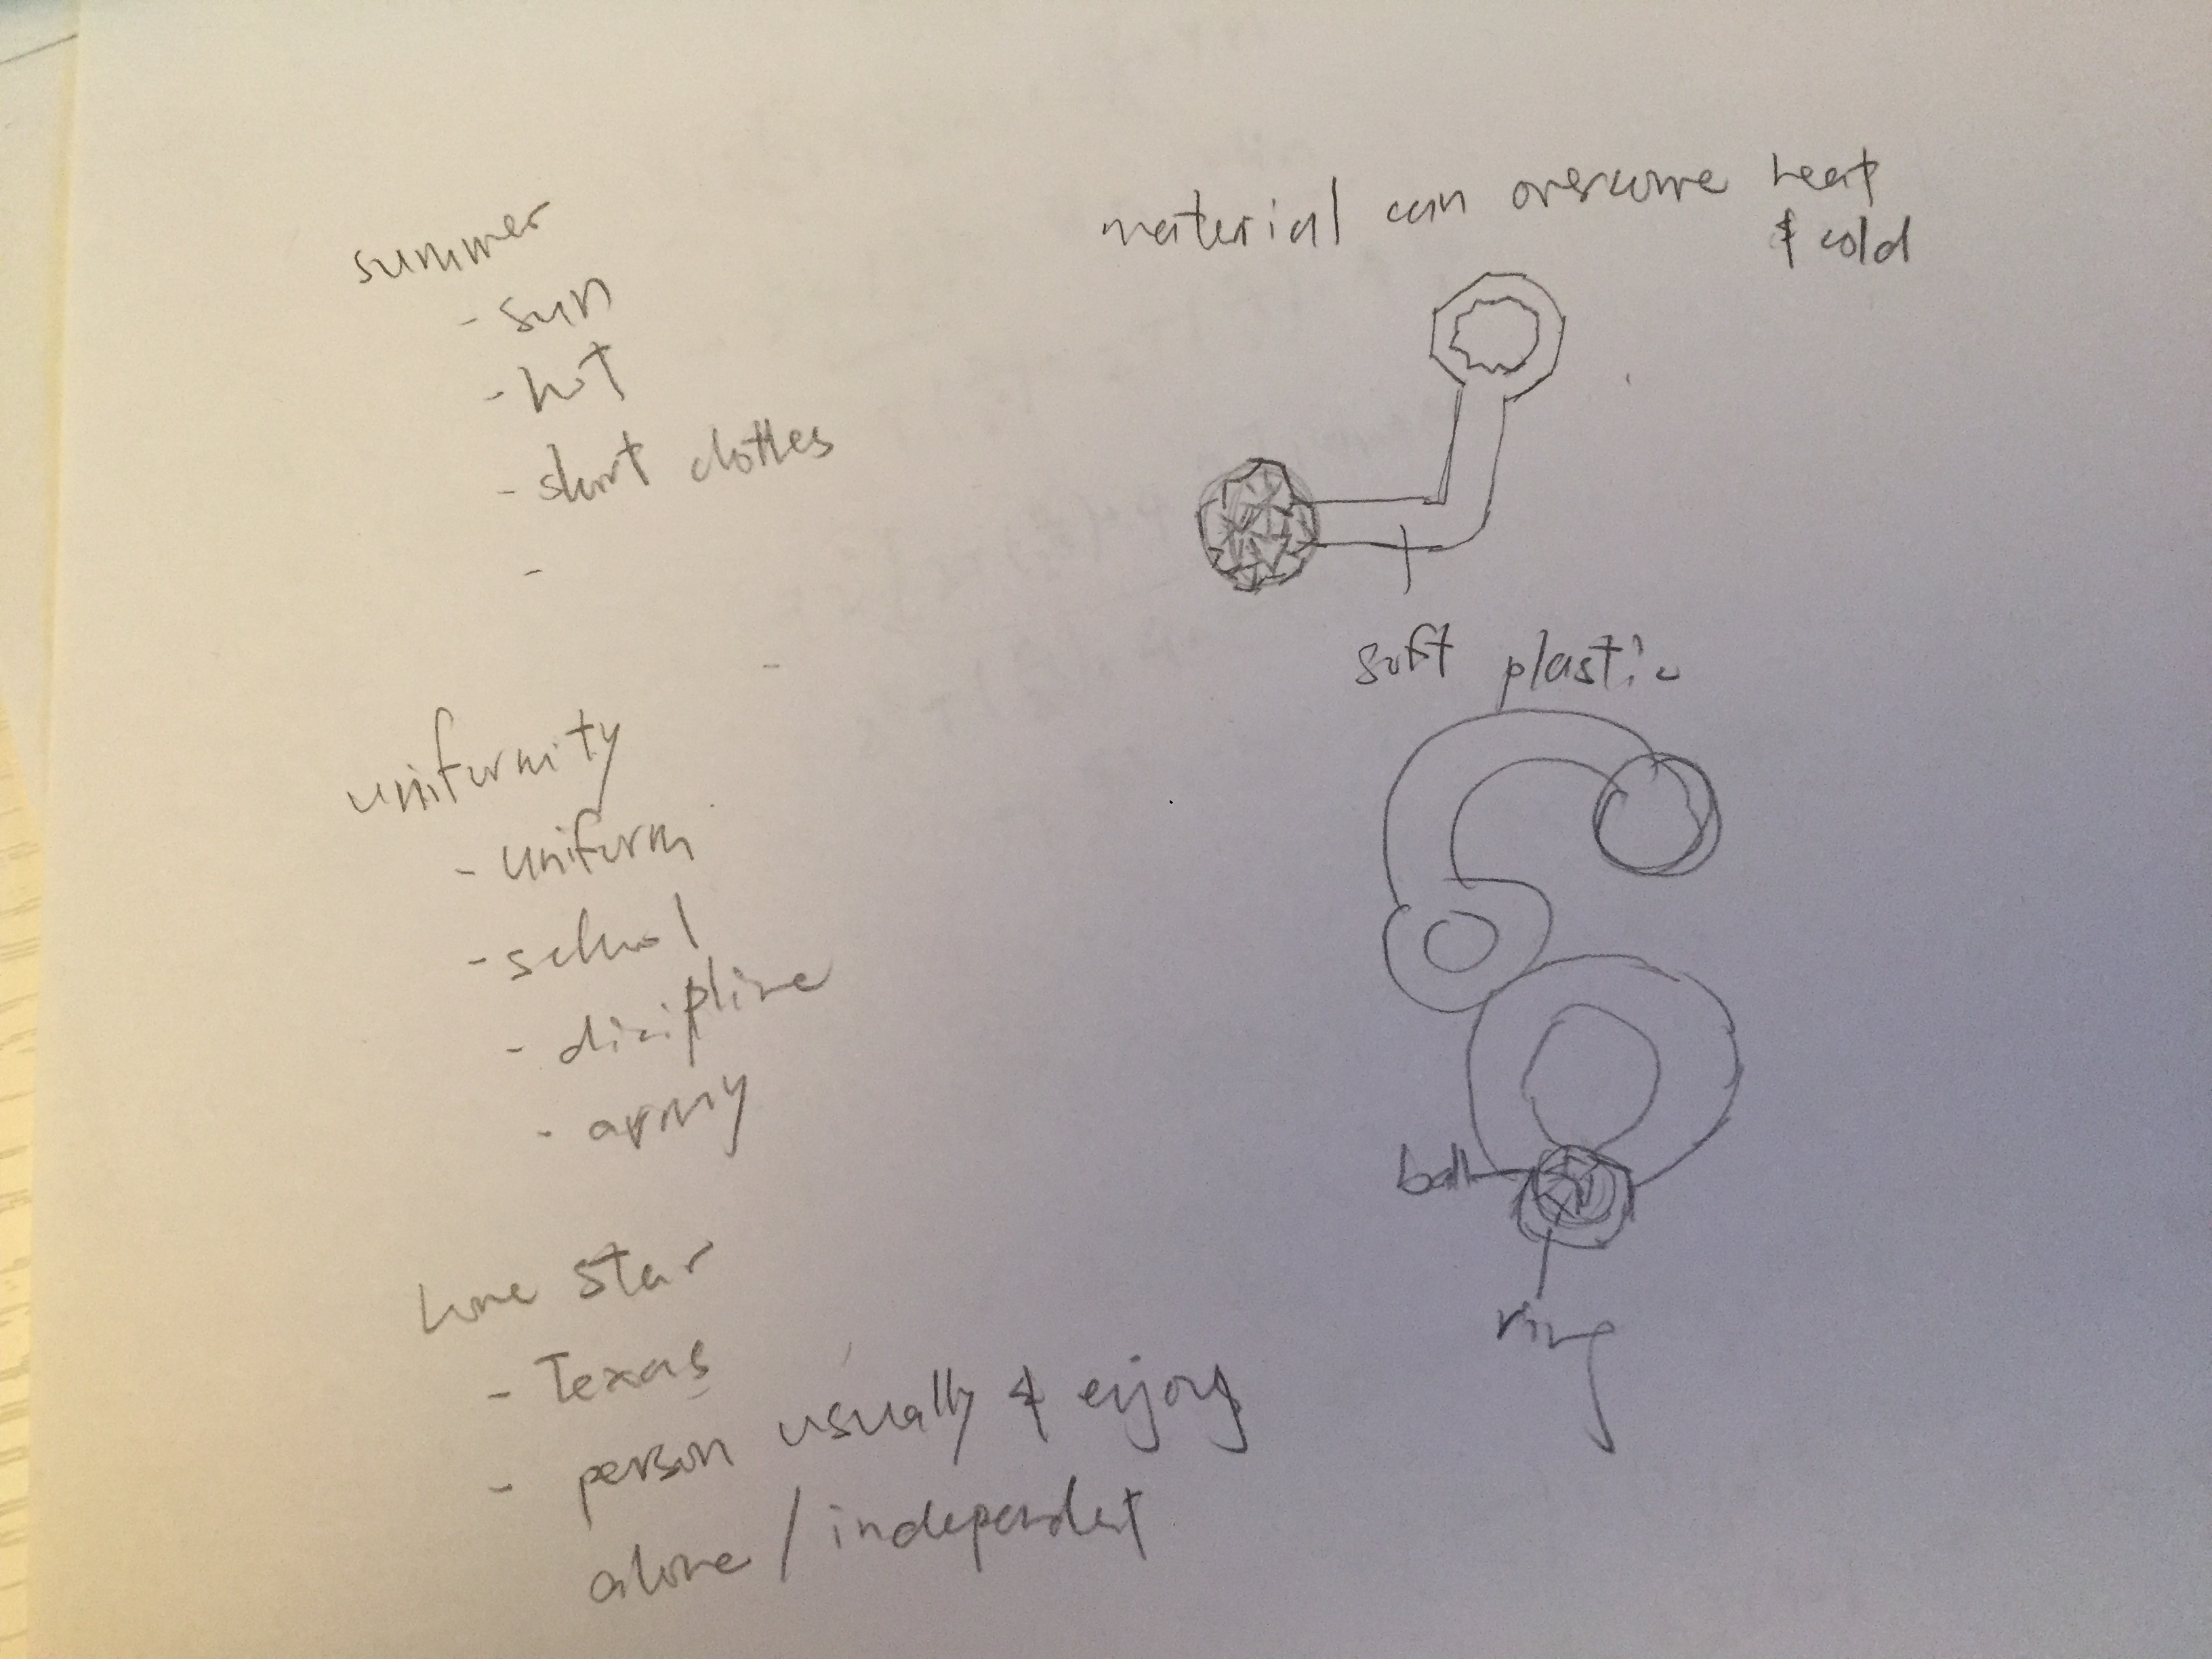 summer
- sun
- hot
- short clothes
-
uniformity
- uniform
- school
- dicipline
- army
lone star
- Texas
- person usually & enjoy
alone / independent
material can overcome heat
& cold
soft plastic
ball
ring